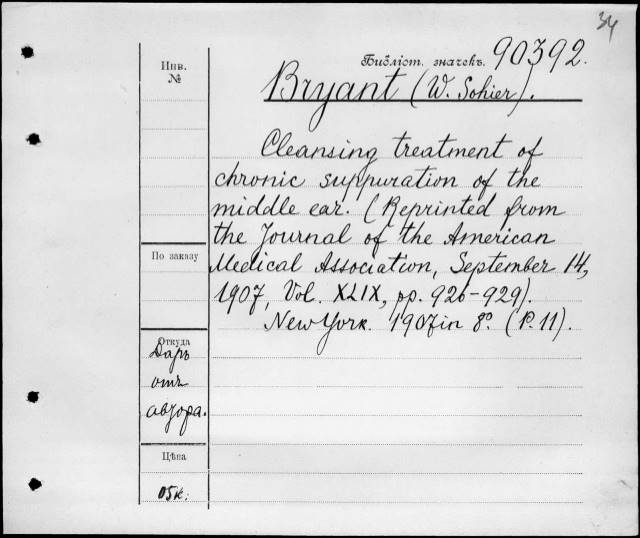 34
Инв. №
Библіот. значекъ. 90392.
Bryant (W. Sohier).
Cleansing treatment of
chronic suppuration of the
middle ear. (Reprinted from
the Journal of the American
Medical Association, September 14,
1907, Vol. XLIX, pp. 926-929).
New York. 1907 in 8º. (P. 11).
По заказу
Откуда
Даръ
отъ
автора.
Цѣна
05к.